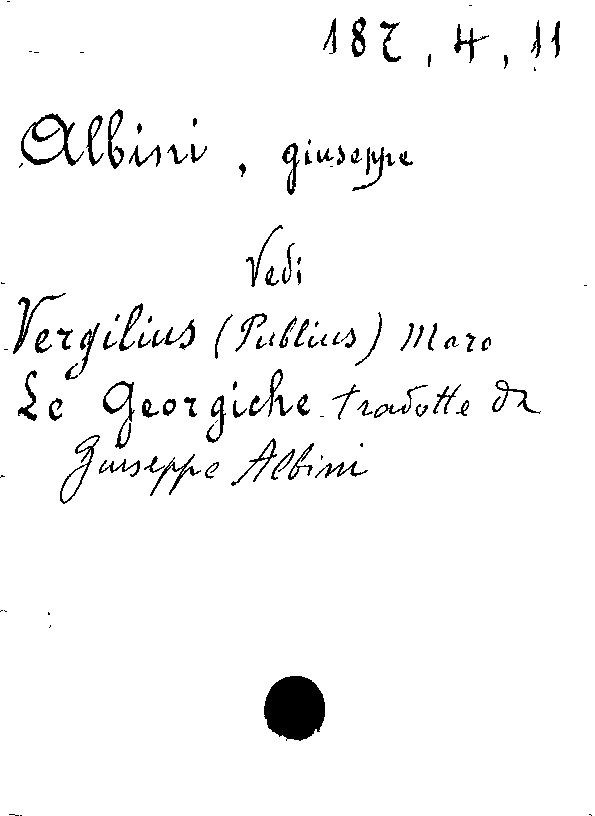 187, 4, 11
Albini, Giuseppe
Vedi
Vergilius (Publius) Maro
Le Georgiche tradotte da
Giuseppe Albini